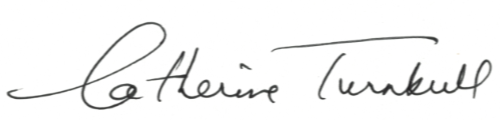 Catherine Turnbull